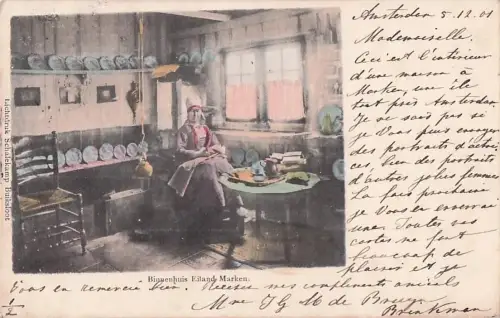 Amsterdam 5.12.01
Mademoiselle.
Ceci est l'intérieur
d'une maison à
Marken, une île
tout près Amsterdam
Je ne sais pas si
je Vous plus envoyer
des portraits d'actri-
ces, bien des portraits
d'autres jolies femmes
La fois prochaine
je Vous en enverrai
une. Toutes vos
cartes me font
beaucoup de
plaisir et je
Vous en remercie bien. Recevez mes compliments amicals
Mme J G M de Bruyn
Brinkman
1/2
Binnenhuis Eiland Marken.
Lichtdruk Schalekamp Buiksloot